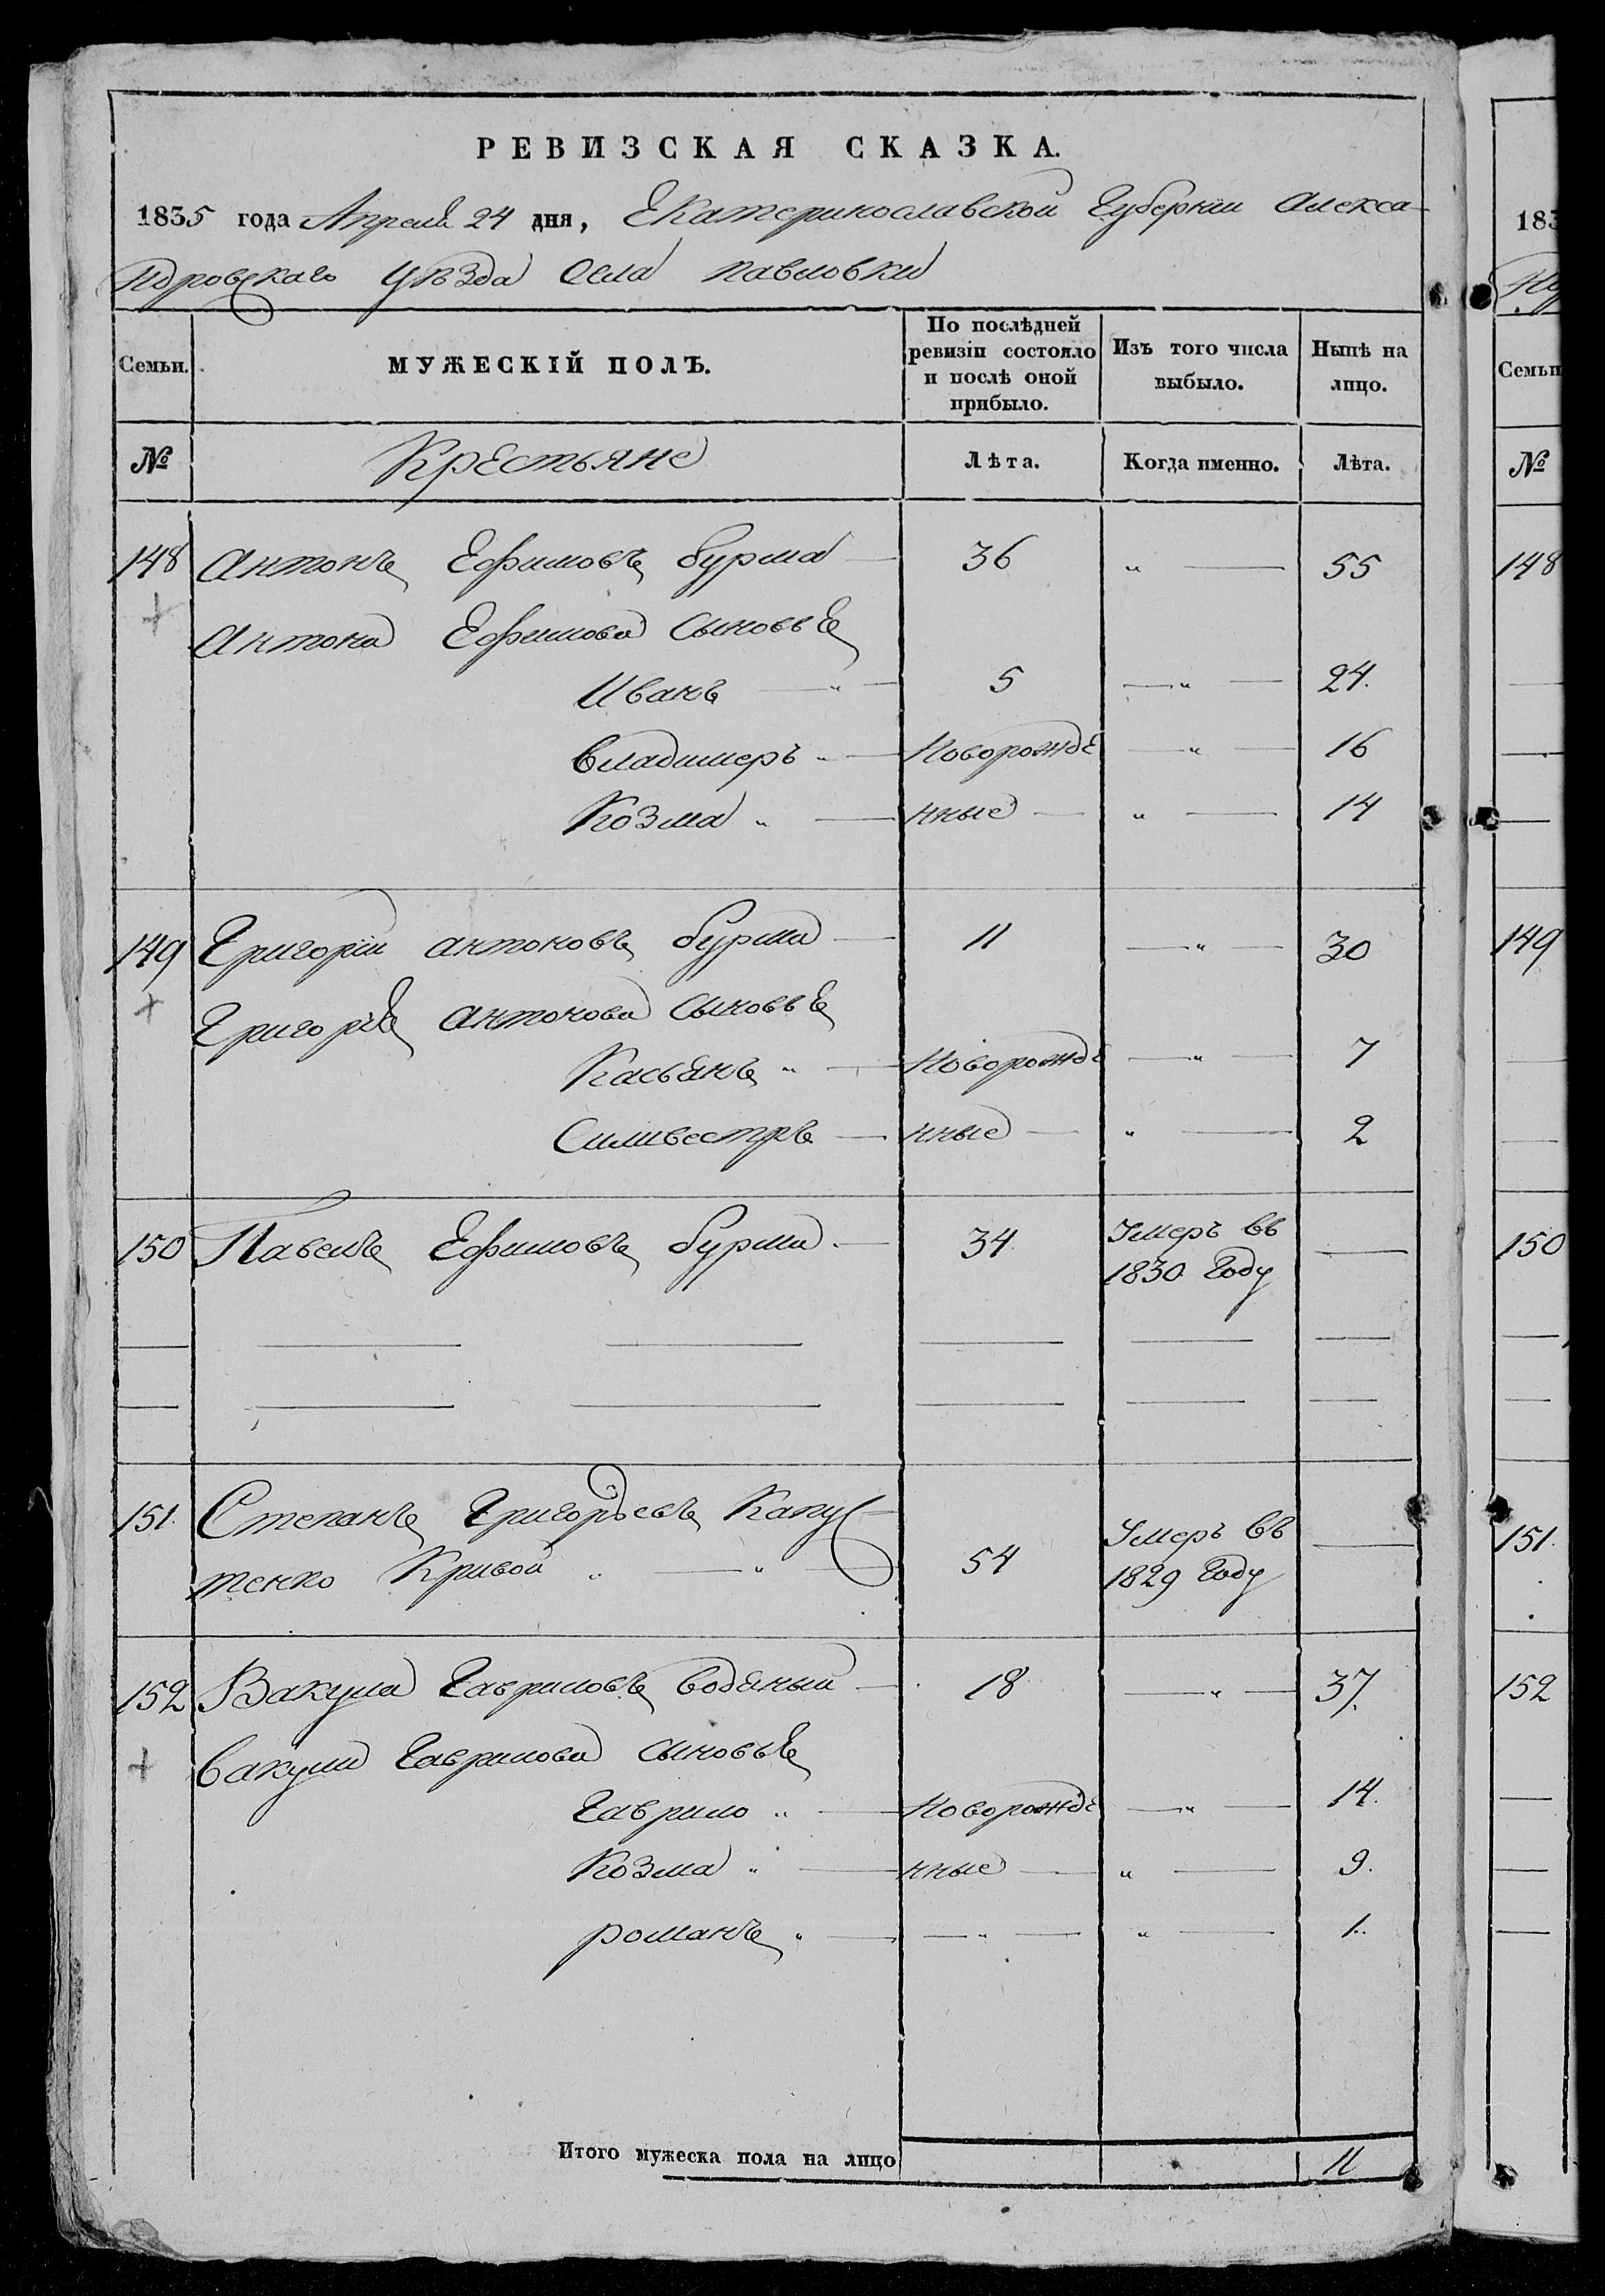 РЕВИЗСКАЯ СКАЗКА.
1835 года Апреля 24 дня, Екатеринославской Губернии Алекса-
ндровскаго уѣзда Села Павловки
Семьи. МУЖЕСКІЙ ПОЛЪ. По послѣдней ревизіи состояло и послѣ оной прибыло. Изъ того числа выбыло. Нынѣ на лицо.
№ Крестьяне Лѣта. Когда именно. Лѣта.
148 Антонъ Ефимовъ Бурма — 36 " — 55
Антона Ефимова сыновья
Иванъ — " — 5 — " — 24.
Владимеръ " — Новорожде — " — 16
Козма " — нные — " — 14
149 Григорій Антоновъ Бурма — 11 — " — 30
Григорія Антонова сыновья
Касьянъ " — Новорожде — " — 7
Силивестръ — нные — " — 2
150 Павелъ Ефимовъ Бурма. — 34 Умеръ въ —
1830 году
151. Степанъ Григорьевъ Капус- Умеръ въ —
тенко Кривой " — " — 54 1829 году
152 Вакула Гавриловъ Водяный — 18 — " — 37.
Вакулы Гаврилова сыновья
Гаврило " — Новорожде — " — 14.
Козма " — нные — " — 9.
Романъ " — — " — " — 1.
Итого мужеска пола на лицо 11
183
Семьи
№
148
149
150
151.
152